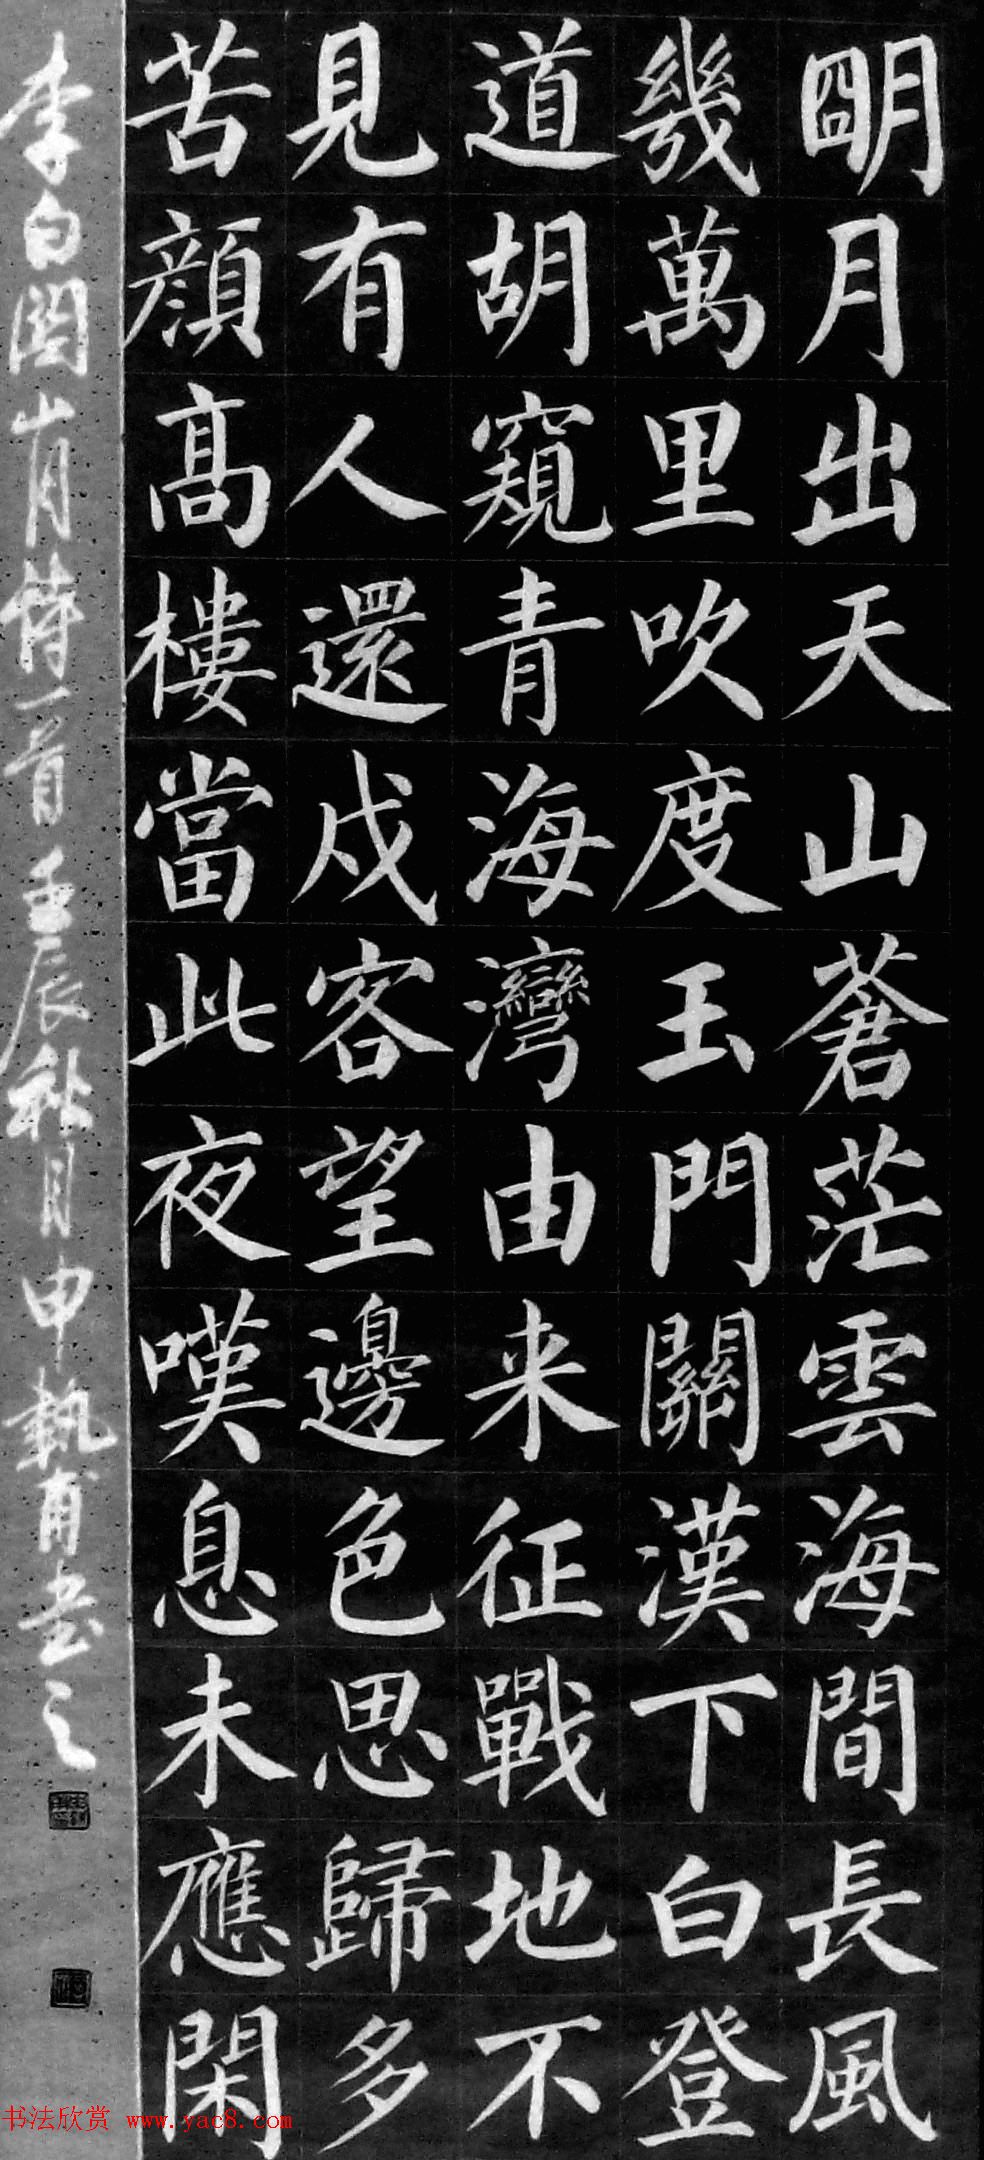 明月出天山蒼茫雲海間長風
幾萬里吹度玉門關漢下白登
道胡窺青海灣由来征戰地不
見有人還戍客望邊色思歸多
苦顔高樓當此夜嘆息未應閑
李白関山月詩一首壬辰秋月申執甫書之
书法欣赏 www.yac8.com